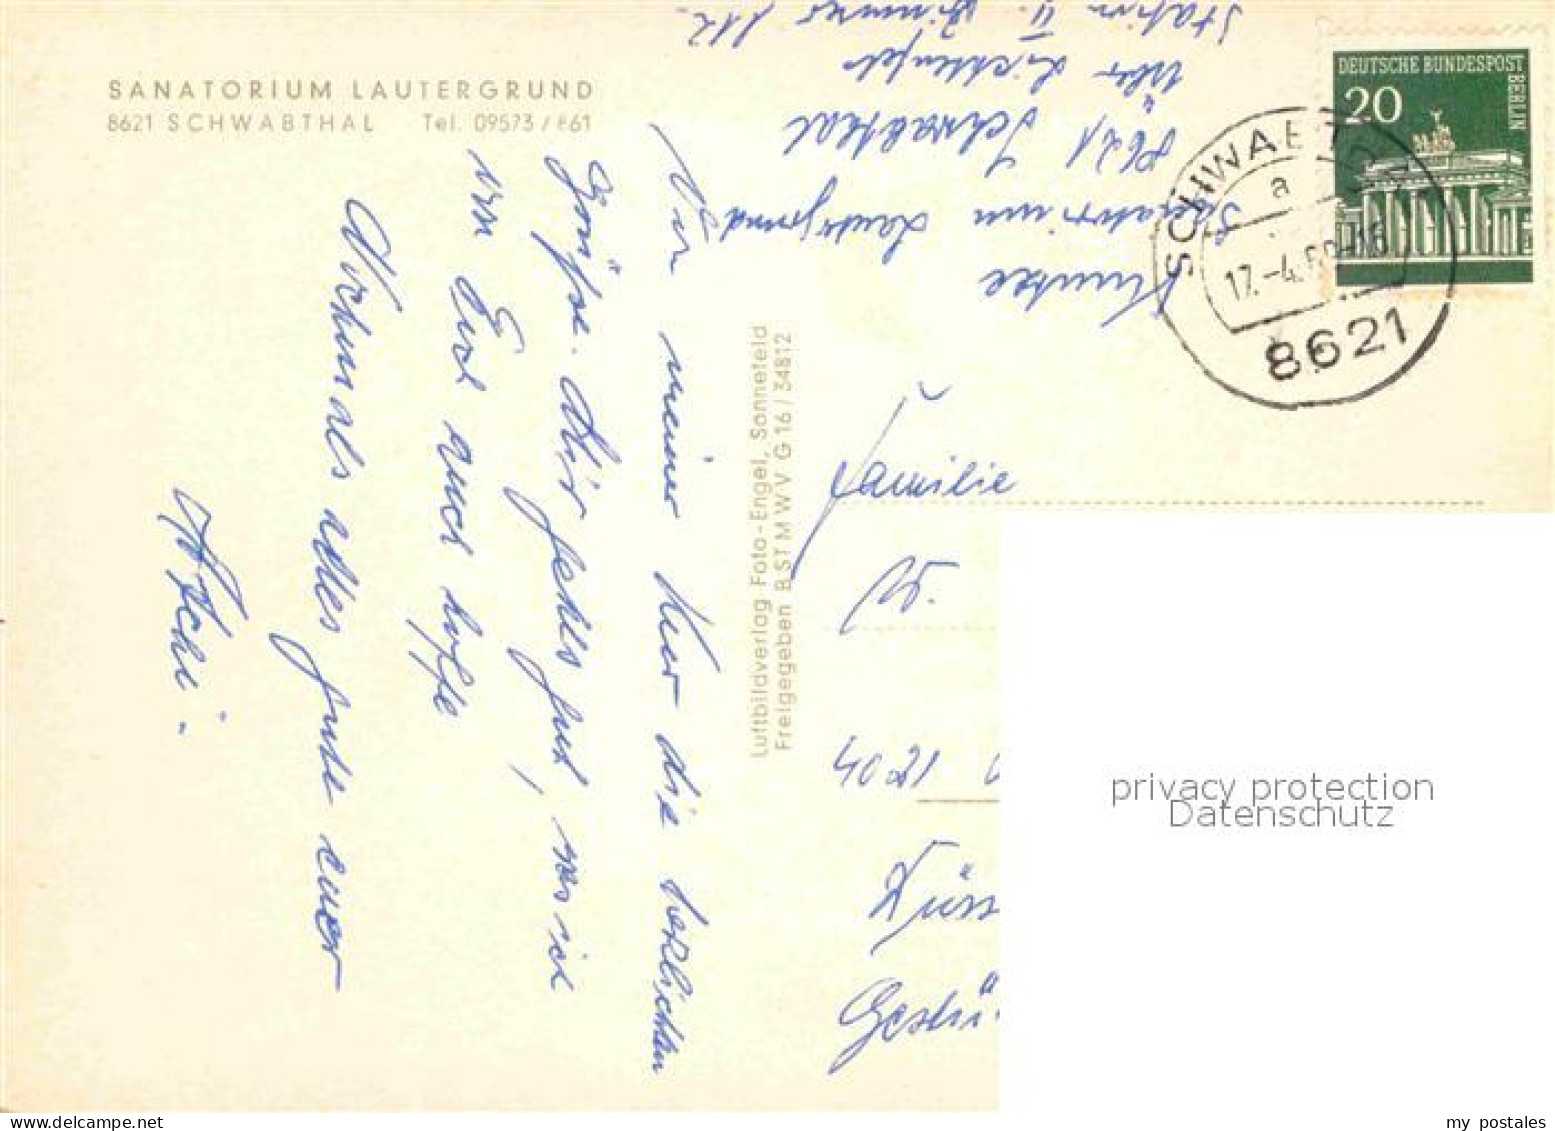 SANATORIUM LAUTERGRUND
8621 SCHWABTHAL Tel. 09573/861
Von meiner Kur die herzlichsten
Grüße. Mir gehts gut, was ich
von Euch auch hoffe
Nochmals alles gute euer
Luftbildverlag Foto-Engel, Sonnefeld
Freigegeben B ST M W V G 16 / 34812
Sanatorium Lautergrund
8621 Schwabthal
über Lichtenfels
Station II. Zimmer 112
DEUTSCHE BUNDESPOST
BERLIN
20
a
17.-4.
8621
Familie
W.
4021
privacy protection
Datenschutz
my postales